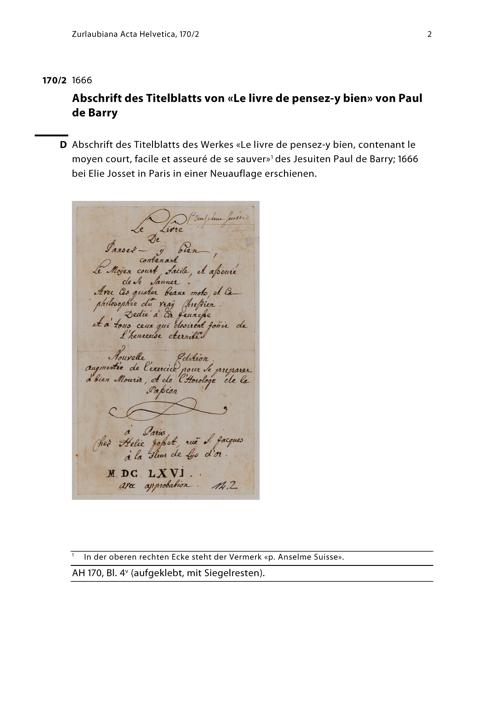 Zurlaubiana Acta Helvetica, 170/2 2
170/2 1666
Abschrift des Titelblatts von «Le livre de pensez-y bien» von Paul
de Barry
D Abschrift des Titelblatts des Werkes «Le livre de pensez-y bien, contenant le
moyen court, facile et asseuré de se sauver»¹ des Jesuiten Paul de Barry; 1666
bei Elie Josset in Paris in einer Neuauflage erschienen.
p. Anselme Suisse
Le Livre
De
Pensez-y bien,
contenant
Le Moyen court, facile, et asseuré
de se sauver.
Avec les quatre beaux mots, et la
philosophie du vray Chrestien.
Dedié à la Jeunesse
et à tous ceux qui desirent jouir de
l'heureuse eternité
Nouvelle Edition
augmentée de l'exercice pour se preparer
à bien Mourir, et de l'Horologe de la
Passion
à Paris
chez Helie Josset, rue S. Jacques
à la fleur de Lys d'or.
M DC LXVI.
avec approbation.
¹ In der oberen rechten Ecke steht der Vermerk «p. Anselme Suisse».
AH 170, Bl. 4ᵛ (aufgeklebt, mit Siegelresten).